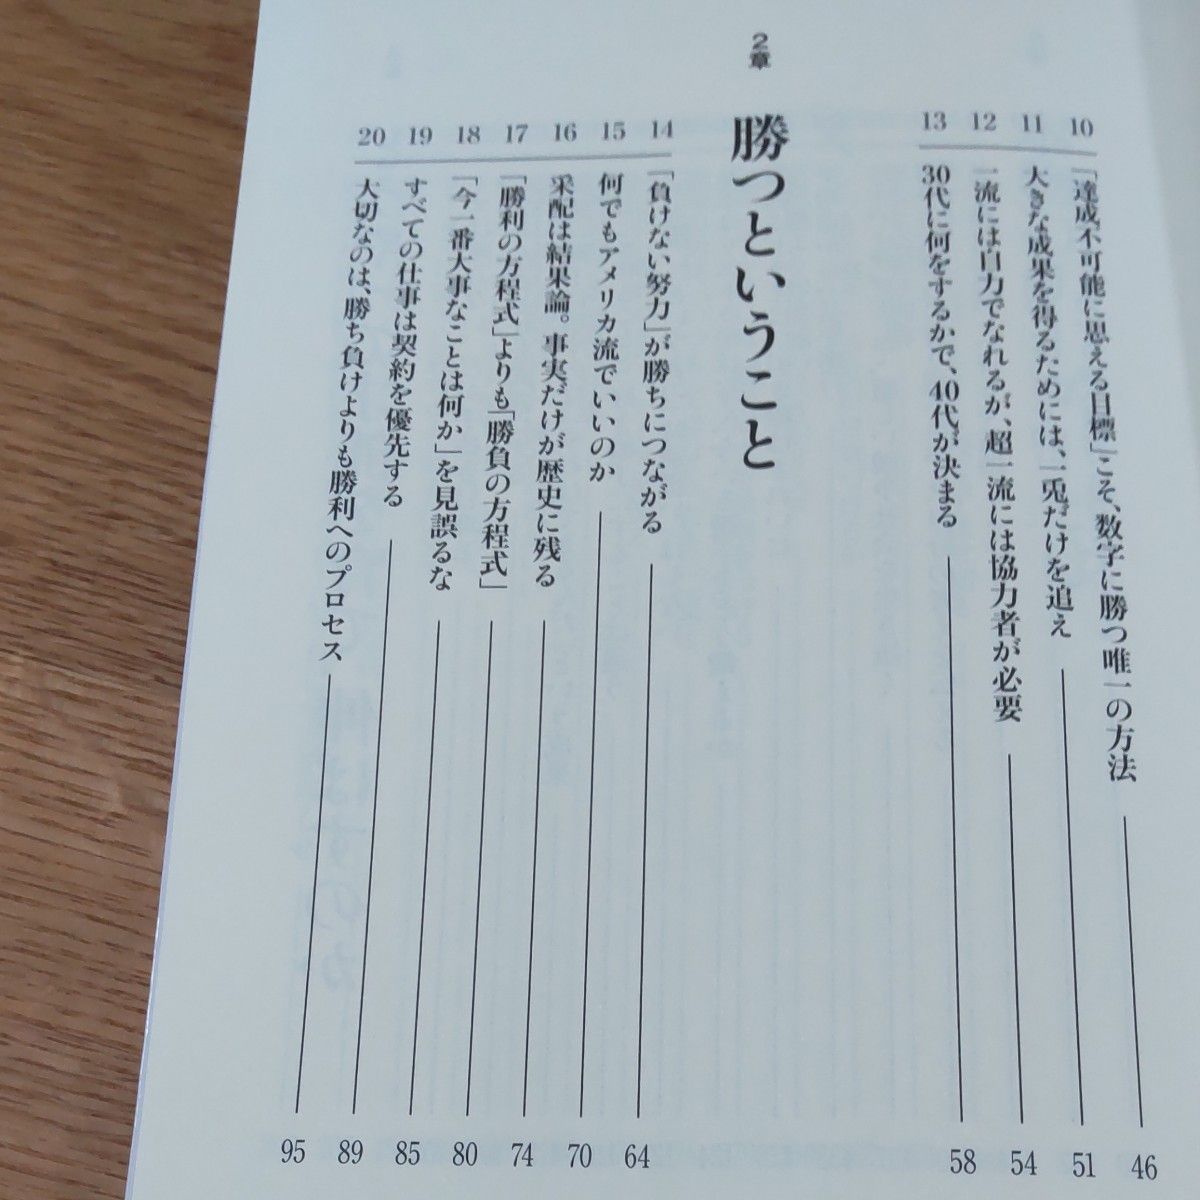 10 「達成不可能に思える目標」こそ、数字に勝つ唯一の方法 46
11 大きな成果を得るためには、一兎だけを追え 51
12 一流には自力でなれるが、超一流には協力者が必要 54
13 30代に何をするかで、40代が決まる 58
2章 勝つということ
14 「負けない努力」が勝ちにつながる 64
15 何でもアメリカ流でいいのか 70
16 采配は結果論。事実だけが歴史に残る 74
17 「勝利の方程式」よりも「勝負の方程式」 80
18 「今一番大事なことは何か」を見誤るな 85
19 すべての仕事は契約を優先する 89
20 大切なのは、勝ち負けよりも勝利へのプロセス 95